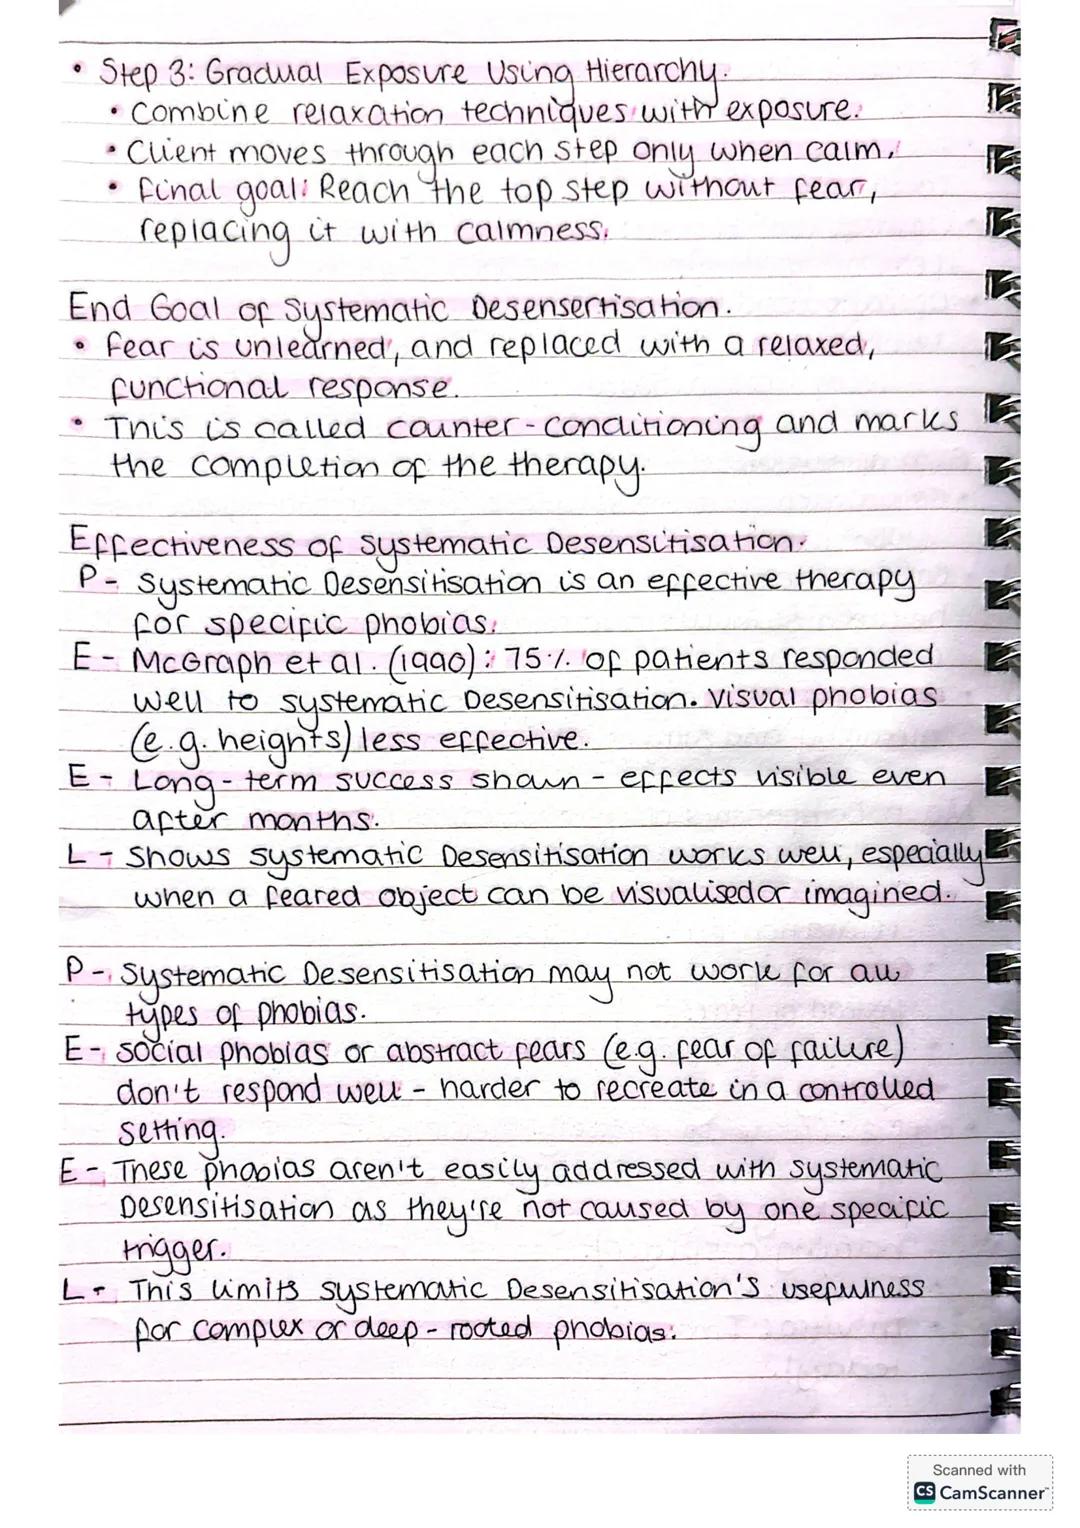 • Step 3: Gradual Exposure Using Hierarchy.
• Combine relaxation techniques with exposure.
• Client moves through each step only when calm.
• Final goal: Reach the top step without fear,
replacing it with calmness.
End Goal of Systematic Desensertisation.
• Fear is unlearned, and replaced with a relaxed,
functional response.
• This is called counter-conditioning and marks
the completion of the therapy.
Effectiveness of Systematic Desensitisation.
P - Systematic Desensitisation is an effective therapy
for specific phobias.
E - McGraph et al. (1990): 75% of patients responded
well to systematic Desensitisation. Visual phobias
(e.g. heights) less effective.
E - Long-term success shown - effects visible even
after months.
L - Shows systematic Desensitisation works well, especially
when a feared object can be visualised or imagined.
P - Systematic Desensitisation may not work for all
types of phobias.
E - social phobias or abstract fears (e.g. fear of failure)
don't respond well - harder to recreate in a controlled
setting.
E - These phobias aren't easily addressed with systematic
Desensitisation as they're not caused by one specific
trigger.
L - This limits systematic Desensitisation's usefulness
for complex or deep-rooted phobias.
Scanned with
CS CamScanner